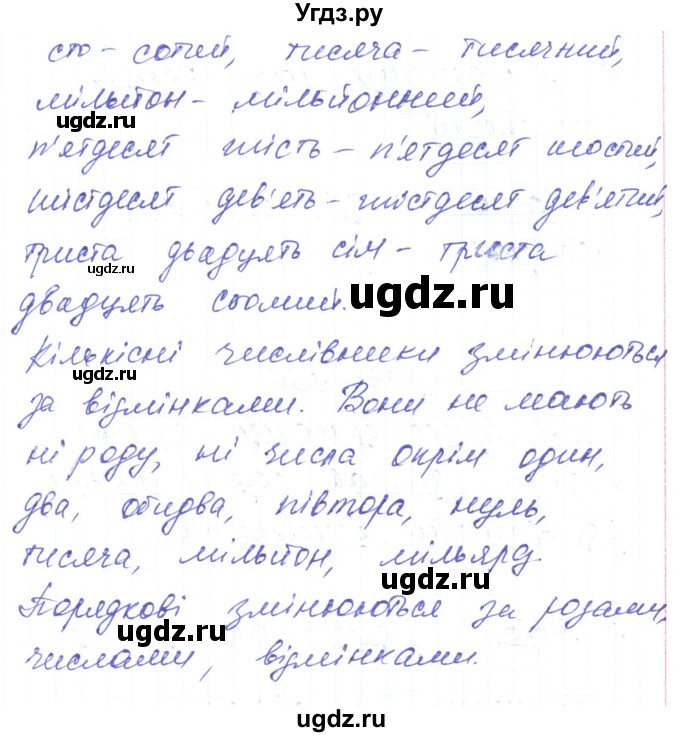 Угдз.ру
сто - сотий, тисяча - тисячний,
мільйон - мільйонний,
ugdz.ru
п'ятдесят шість - п'ятдесят шостий,
шістдесят дев'ять - шістдесят дев'ятий,
триста двадцять сім - триста
ugdz.ru
двадцять сьомий.
ugdz.ru
Кількісні числівники змінюються
ugdz.ru
за відмінками. Вони не мають
ні роду, ні числа окрім один,
два, обидва, півтора, нуль,
тисяча, мільйон, мільярд.
ugdz.ru
Порядкові змінюються за родами,
ugdz.ru
числами, відмінками.
ugdz.ru
ugdz.ru